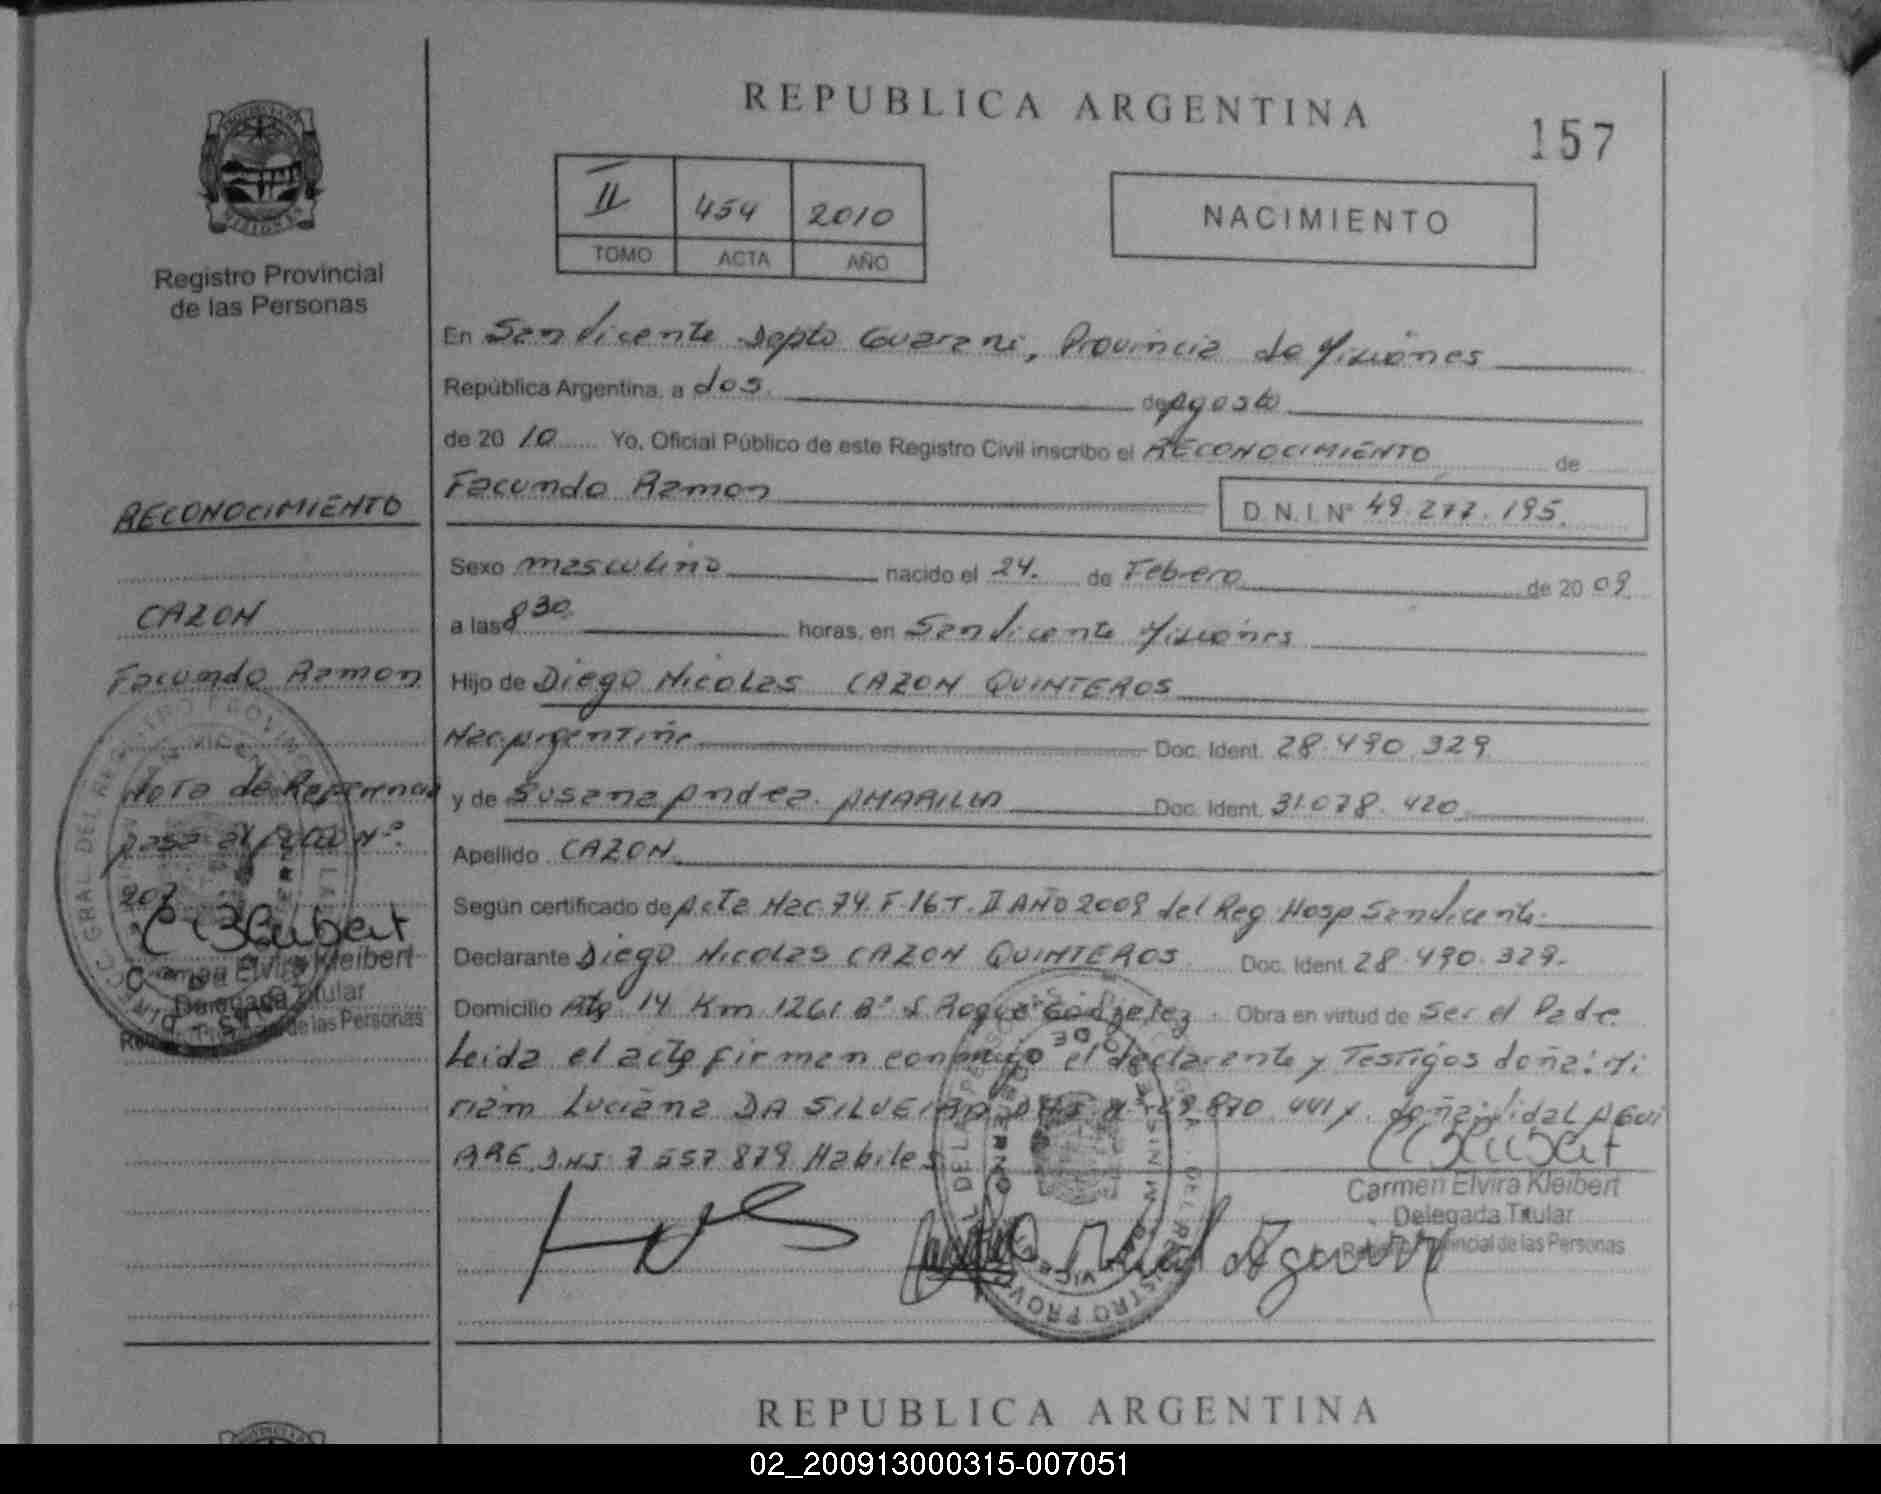 REPUBLICA ARGENTINA
157
II 454 2010
TOMO ACTA AÑO
NACIMIENTO
Registro Provincial
de las Personas
RECONOCIMIENTO
CAZON
Facundo Ramon
Nota de Referencia
pasa al folio Nº
207
Carmen Elvira Kleibert
Delegada Titular
de las Personas
En San Vicente Depto Guarani, Provincia de Misiones
República Argentina, a dos de Agosto
de 20 10 Yo, Oficial Público de este Registro Civil inscribo el RECONOCIMIENTO de
Facundo Ramon D.N.I. Nº 49.277.195.
Sexo masculino nacido el 24. de Febrero de 20 09
a las 8 30 horas, en San Vicente Misiones
Hijo de Diego Nicolas CAZON QUINTEROS
Nac. Argentina Doc. Ident. 28.490.329
y de Susana Andea. AMARILLA Doc. Ident. 31.078.420
Apellido CAZON
Según certificado de Acta Nac. 74. F-16 T. II AÑO 2009 del Reg. Hosp San Vicente.
Declarante Diego Nicolas CAZON QUINTEROS Doc. Ident 28.490.329.
Domicilio Rta 14 Km 1261 Bº S Roque Gonzalez. Obra en virtud de ser el Padre.
Leida el acta firman conmigo el declarante y Testigos doña: Mi
riam Luciana DA SILVEIRA DNI Nº 870.441 y doña Vidal AGUI
ARE DNI 7 557 879 Habiles
Carmen Elvira Kleibert
Delegada Titular
Registro Provincial de las Personas
REPUBLICA ARGENTINA
02_200913000315-007051